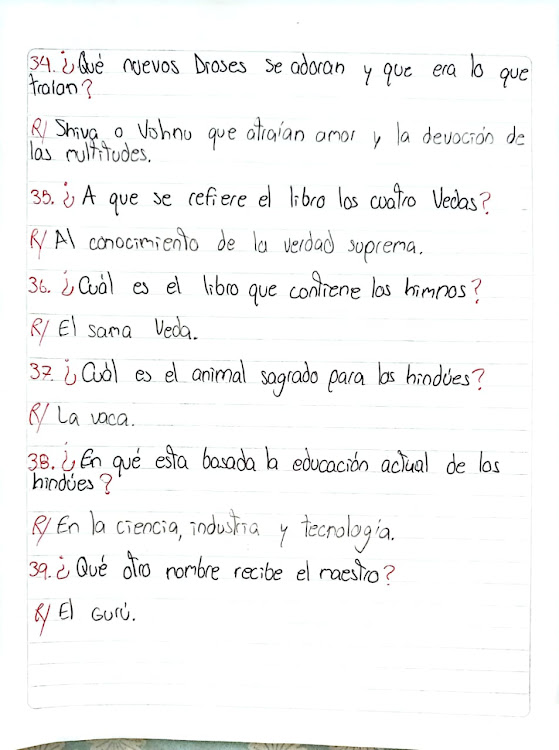 34. ¿Qué nuevos Dioses se adoran y que era lo que
traían?
R/ Shiva o Vishnu que atraían amor y la devoción de
las multitudes.
35. ¿A que se refiere el libro los cuatro Vedas?
R/ Al conocimiento de la verdad suprema.
36. ¿Cuál es el libro que contiene los himnos?
R/ El sama Veda.
37. ¿Cuál es el animal sagrado para los hindúes?
R/ La vaca.
38. ¿En qué esta basada la educación actual de los
hindúes?
R/ En la ciencia, industria y tecnología.
39. ¿Qué otro nombre recibe el maestro?
R/ El Gurú.